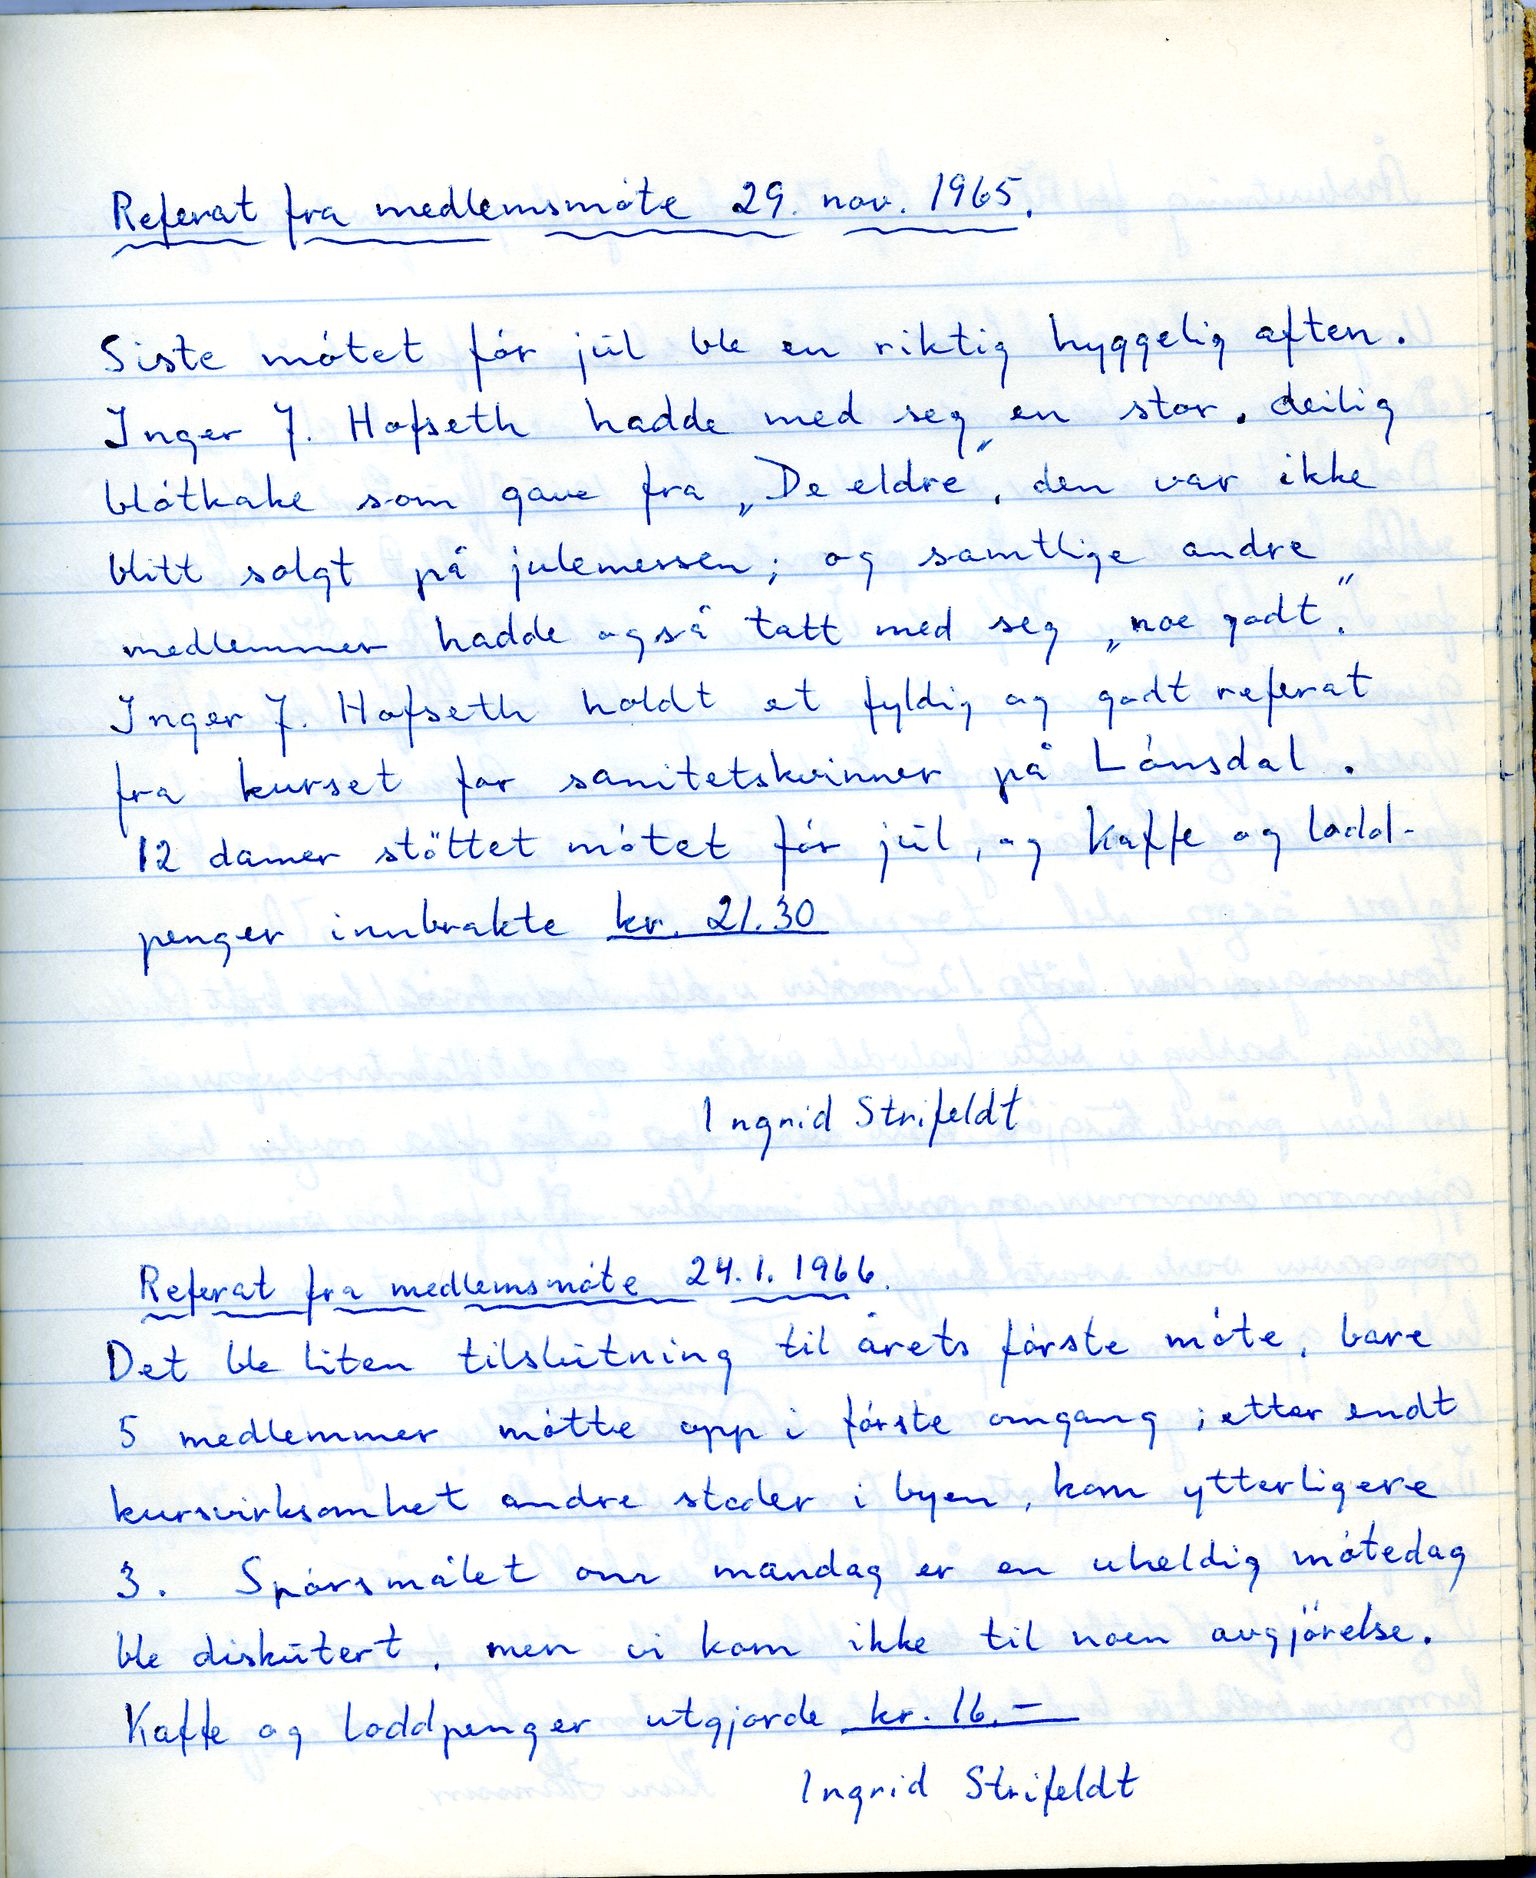 Referat fra medlemsmøte 29. nov. 1965.
Siste møtet før jul ble en riktig hyggelig aften.
Inger J. Hofseth hadde med seg en stor, deilig
bløtkake som gave fra „De eldre”, den var ikke
blitt solgt på julemessen; og samtlige andre
medlemmer hadde også tatt med seg „noe godt”.
Inger J. Hofseth holdt et fyldig og godt referat
fra kurset for sanitetskvinner på Lønsdal.
12 damer støttet møtet før jul, og kaffe og lodd-
penger innbrakte kr. 21.30
Ingrid Strifeldt
Referat fra medlemsmøte 24.1.1966.
Det ble liten tilslutning til årets første møte, bare
5 medlemmer møtte opp i første omgang; etter endt
kursvirksomhet andre steder i byen, kom ytterligere
3. Spørsmålet om mandag er en uheldig møtedag
ble diskutert, men vi kom ikke til noen avgjørelse.
Kaffe og loddpenger utgjorde kr. 16.–
Ingrid Strifeldt